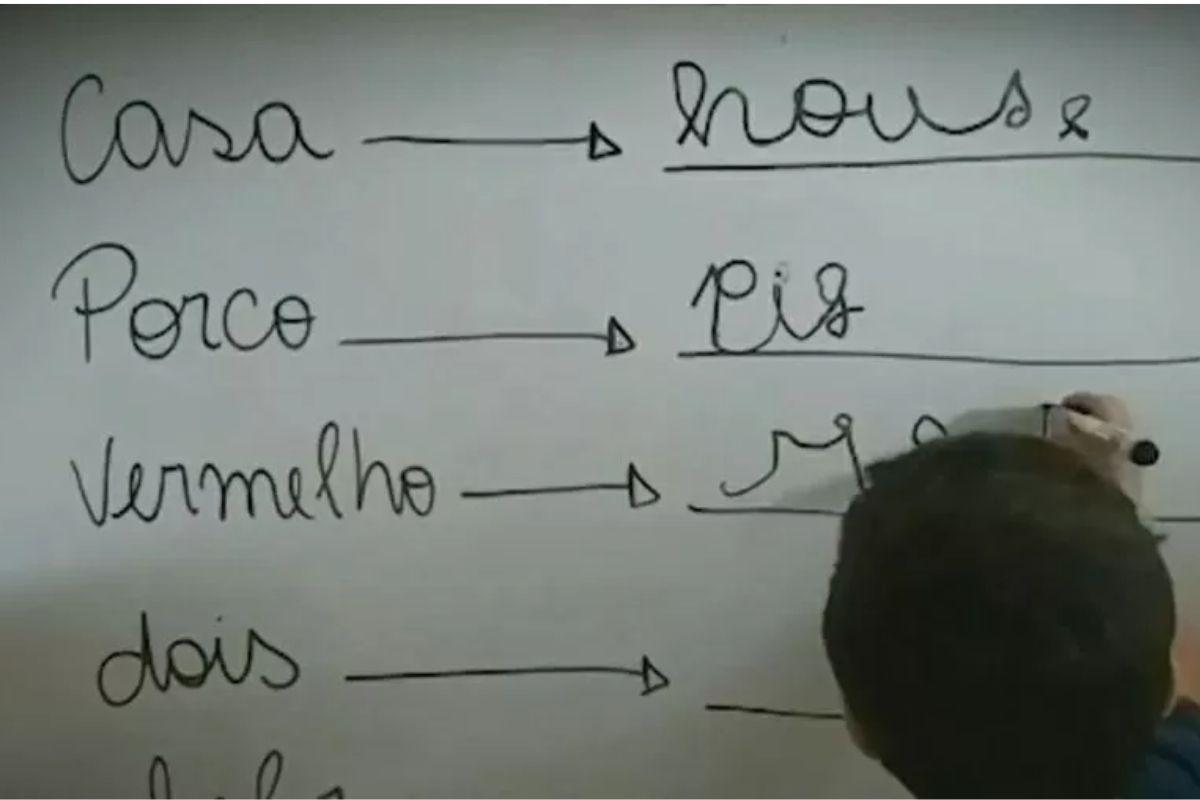 Casa house
Porco pig
Vermelho
dois